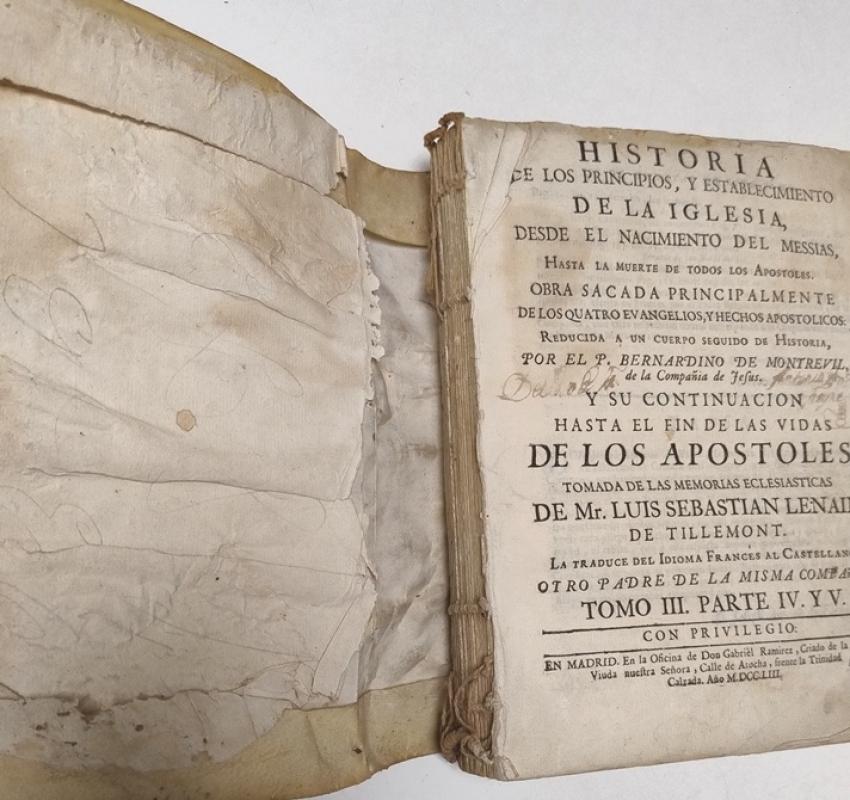 HISTORIA
DE LOS PRINCIPIOS, Y ESTABLECIMIENTO
DE LA IGLESIA,
DESDE EL NACIMIENTO DEL MESSIAS,
HASTA LA MUERTE DE TODOS LOS APOSTOLES.
OBRA SACADA PRINCIPALMENTE
DE LOS QUATRO EVANGELIOS, Y HECHOS APOSTOLICOS:
REDUCIDA A UN CUERPO SEGUIDO DE HISTORIA,
POR EL P. BERNARDINO DE MONTREVIL,
de la Compañia de Jesus.
Y SU CONTINUACION
HASTA EL FIN DE LAS VIDAS
DE LOS APOSTOLES
TOMADA DE LAS MEMORIAS ECLESIASTICAS
DE Mr. LUIS SEBASTIAN LENAI
DE TILLEMONT.
LA TRADUCE DEL IDIOMA FRANCÈS AL CASTELLANO
OTRO PADRE DE LA MISMA COMPAÑ
TOMO III. PARTE IV. Y V.
CON PRIVILEGIO:
EN MADRID. En la Oficina de Don Gabrièl Ramirez, Criado de la
Viuda nuestra Señora, Calle de Atocha, frente la Trinidad
Calzada. Año M.DCC.LIII.